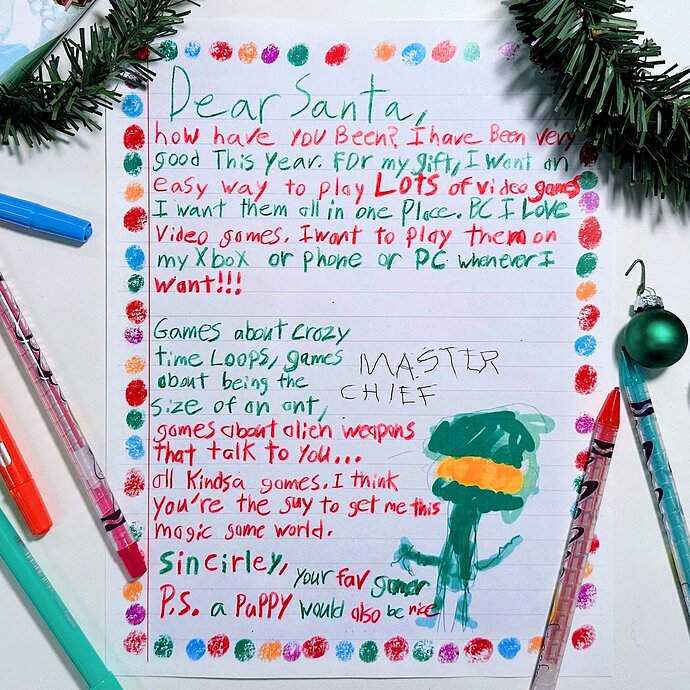 Dear Santa,
how have you Been? I have Been very
good This year. For my gift, I want an
easy way to play LOTS of video games
I want them all in one Place. BC I LOVE
Video games. I want to play them on
my Xbox or Phone or PC whenever I
want!!!
Games about crazy
time Loops, games
about being the
size of an ant,
games about alien weapons
that talk to you...
all kindsa games. I think
you're the guy to get me this
magic game world.
MASTER
CHIEF
Sincirley, your fav gamer
P.S. a PuPPY would also be nice